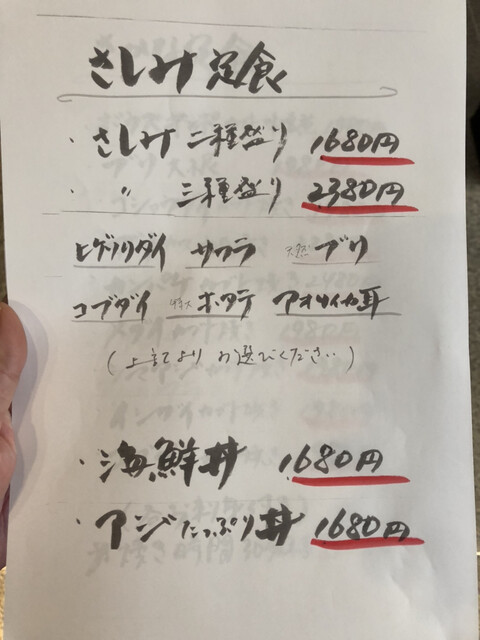 さしみ定食
・さしみ 二種盛り 1680円
・ 〃 三種盛り 2380円
ヒゲソリダイ サワラ 天然ブリ
コブダイ 特大ホタテ アオリイカ耳
(上記よりお選びください)
・海鮮丼 1680円
・アジたっぷり丼 1680円